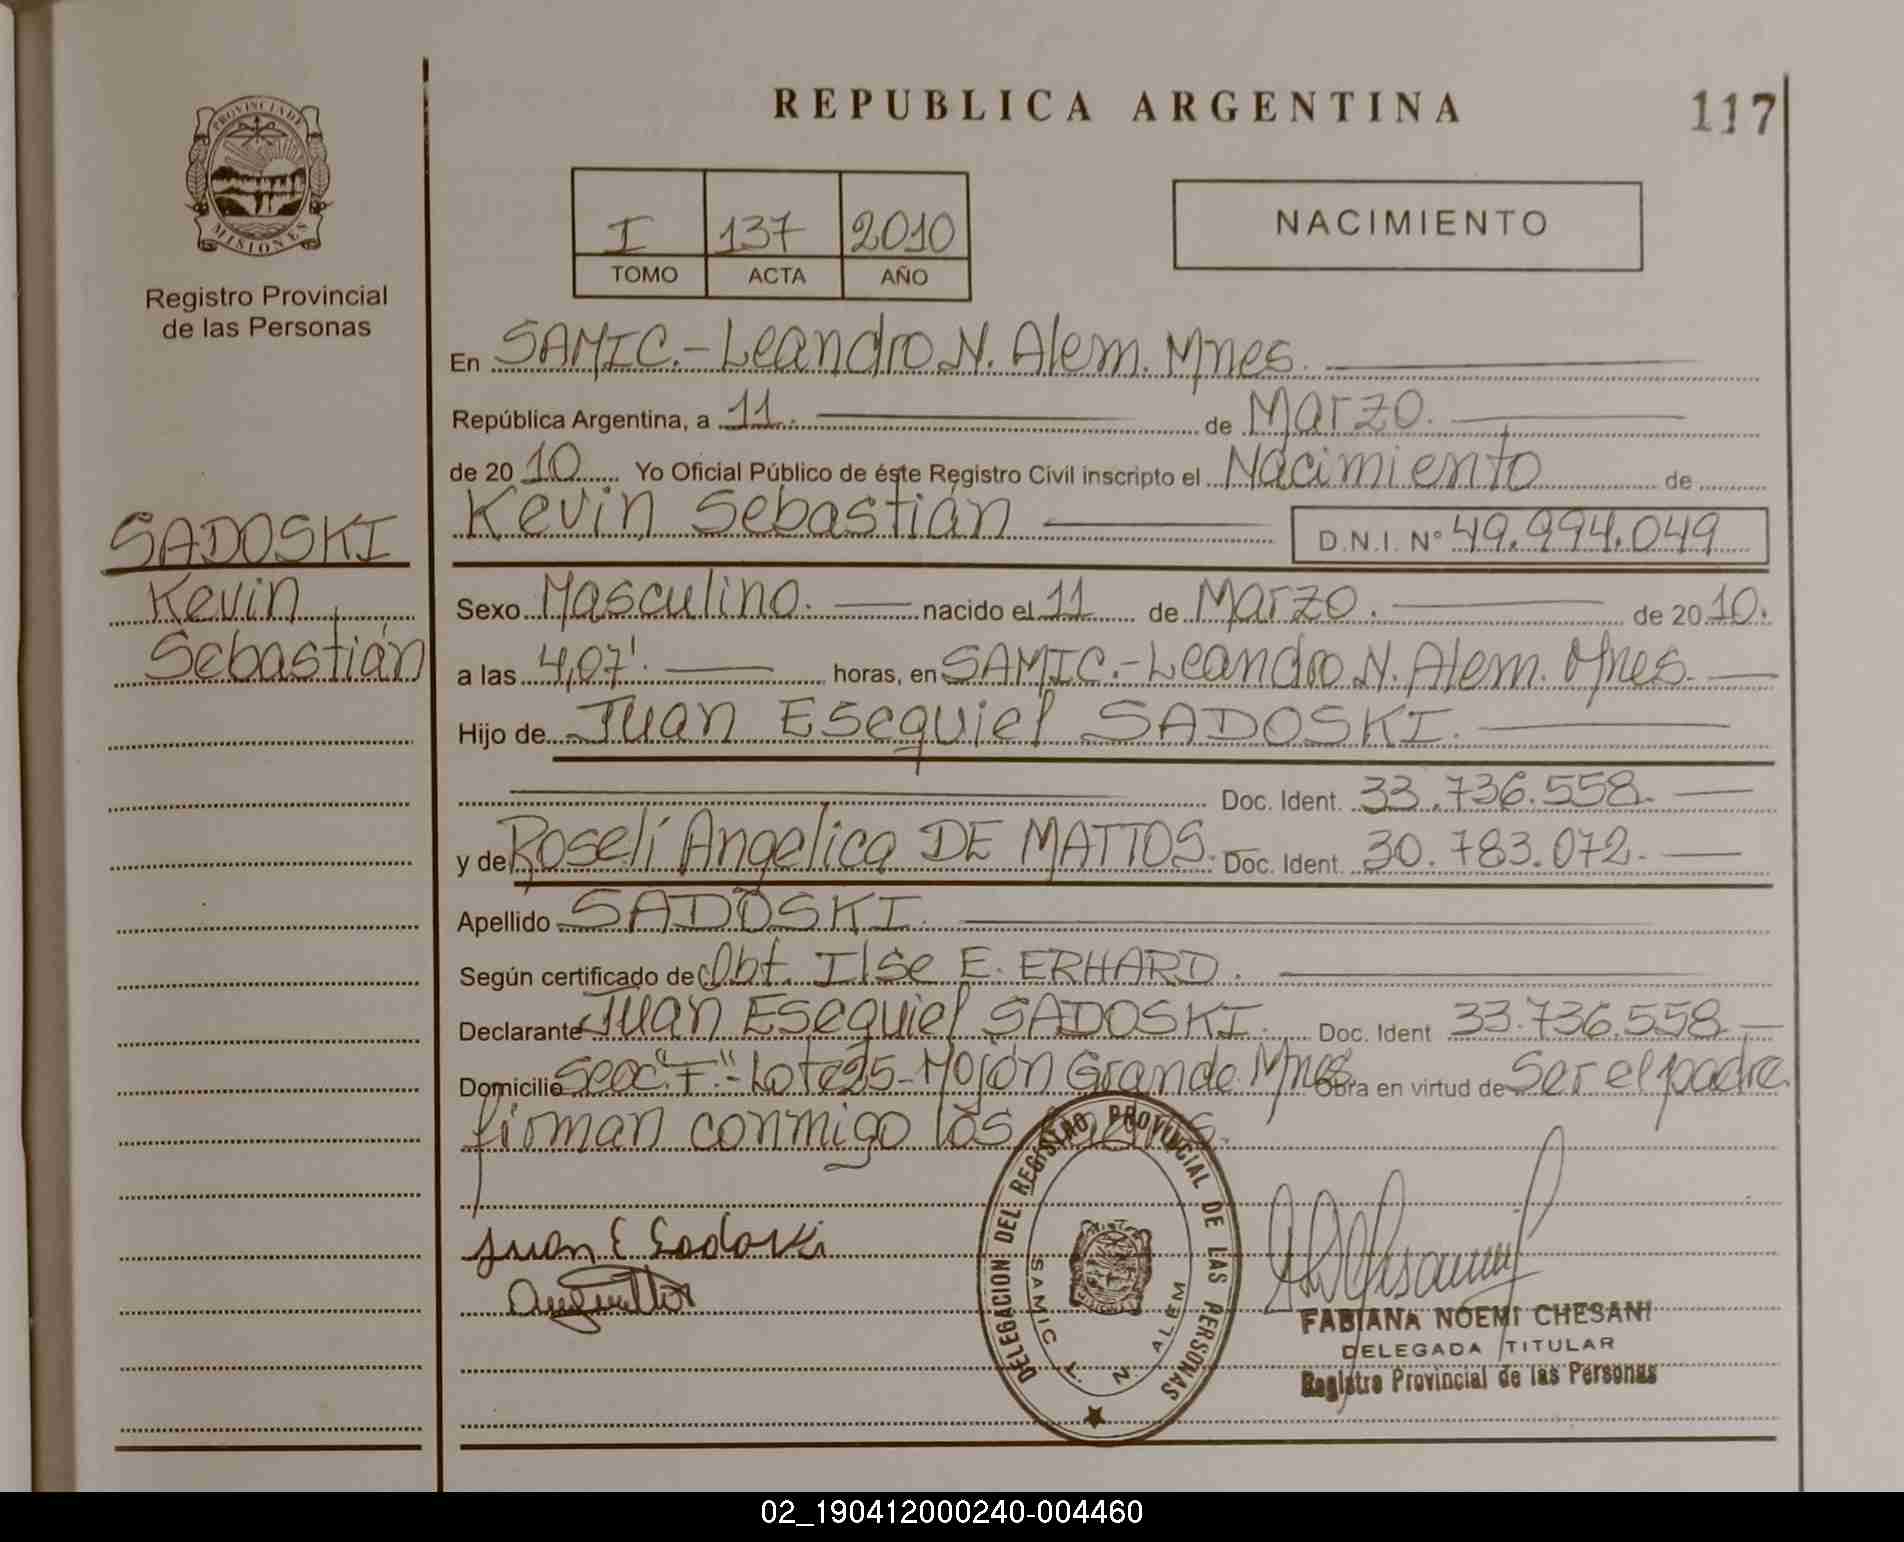 REPUBLICA ARGENTINA
117
PROVINCIA DE
MISIONES
Registro Provincial
de las Personas
I 137 2010
TOMO ACTA AÑO
NACIMIENTO
En SAMIC.-Leandro N. Alem. Mnes.
República Argentina, a 11. de Marzo.
de 2010 Yo Oficial Público de éste Registro Civil inscripto el Nacimiento de
Kevin Sebastián D.N.I. N° 49.994.049
SADOSKI
Kevin
Sebastián
Sexo Masculino. nacido el 11 de Marzo. de 2010.
a las 4,07'. horas, en SAMIC.-Leandro N. Alem. Mnes.
Hijo de Juan Esequiel SADOSKI.
Doc. Ident. 33.736.558.
y de Roselí Angelica DE MATTOS. Doc. Ident. 30.783.072.
Apellido SADOSKI.
Según certificado de Obt. Ilse E. ERHARD.
Declarante Juan Esequiel SADOSKI. Doc. Ident 33.736.558
Domicilio Secc. "F"-Lote 25-Mojón Grande. Mnes. Obra en virtud de Ser el padre.
firman conmigo los
Juan E Sadoski
DELEGACION DEL REGISTRO PROVINCIAL DE LAS PERSONAS
SAMIC L. N. ALEM
FABIANA NOEMI CHESANI
DELEGADA TITULAR
Registro Provincial de las Personas
02_190412000240-004460